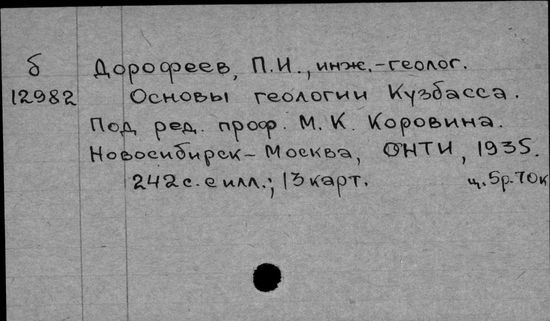 б Дорофеев, П.И., инж.-геолог.
12982 Основы геологии Кузбасса.
Под ред. проф. М. К. Коровина.
Новосибирск-Москва, ОНТИ, 1935.
242 с. с илл.; 13 карт. ц. 5р. 70к